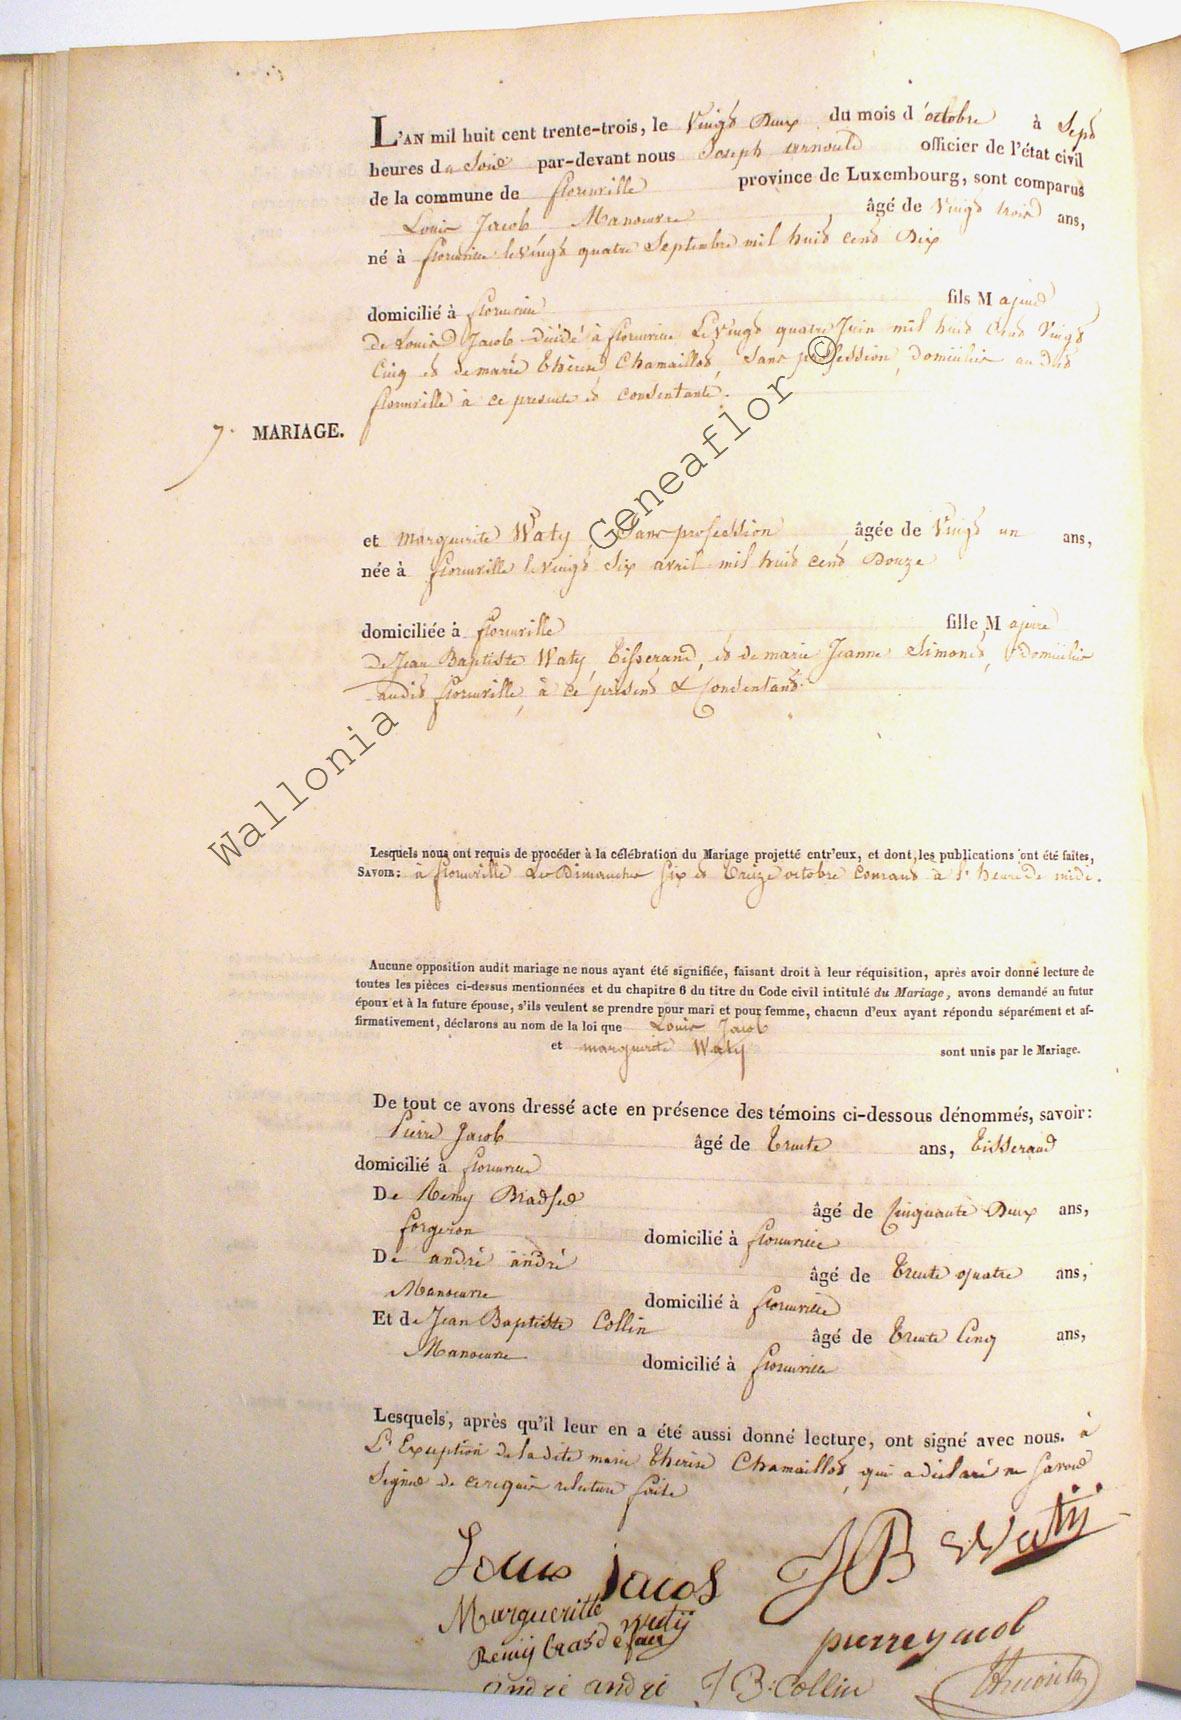 L'AN mil huit cent trente-trois, le Vingt Deux du mois d'octobre à Sept
heures du Soir par-devant nous Joseph arnould officier de l'état civil
de la commune de florenville province de Luxembourg, sont comparus
Louis Jacob Manoeuvre âgé de Vingt trois ans,
né à florenville le vingt quatre Septembre mil huit cent Dix
domicilié à florenville fils Majeur
de Louis Jacob décédé à florenville Le Vingt quatre Juin mil huit Cent Vingt
Cinq et de marie thérèse Chamaillot, Sans profession, domiciliée au dit
florenville à ce présente et consentante.
7. MARIAGE.
et marguerite Waty, Sans profession âgée de Vingt un ans,
née à florenville le vingt Six avril mil huit cent Douze
domiciliée à florenville fille Majeure
de Jean Baptiste Waty, tisserand, et de marie Jeanne Simonet, domiciliés
audit florenville, à ce présent & Consentant.
Lesquels nous ont requis de procéder à la célébration du Mariage projetté entr'eux, et dont les publications ont été faites,
SAVOIR: à florenville Les Dimanches six et treize octobre Courant à l'heure de midi.
Aucune opposition audit mariage ne nous ayant été signifiée, faisant droit à leur réquisition, après avoir donné lecture de
toutes les pièces ci-dessus mentionnées et du chapitre 6 du titre du Code civil intitulé du Mariage, avons demandé au futur
époux et à la future épouse, s'ils veulent se prendre pour mari et pour femme, chacun d'eux ayant répondu séparément et af-
firmativement, déclarons au nom de la loi que Louis Jacob
et marguerite Waty sont unis par le Mariage.
De tout ce avons dressé acte en présence des témoins ci-dessous dénommés, savoir:
Pierre Jacob âgé de trente ans, tisserand
domicilié à florenville
De Remy Bradfer âgé de Cinquante Deux ans,
forgeron domicilié à florenville
De andré andré âgé de trente quatre ans,
Manoeuvre domicilié à florenville
Et de Jean Baptiste Collin âgé de trente Cinq ans,
Manoeuvre domicilié à florenville
Lesquels, après qu'il leur en a été aussi donné lecture, ont signé avec nous. à
L'Exception de la dite marie thérèse Chamaillot, qui a déclaré ne savoir
Signer de ce requise lecture faite
Louis Jacob JB Watij
Margueritte watij
Remij bras de fair pierre jacob
andré andré J B: Collin JArnould
Wallonia Geneaflor ©